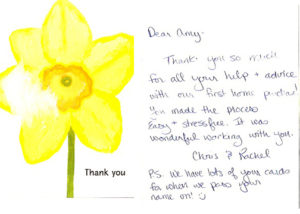 Thank you
Dear Amy-
Thank you so much
for all your help + advice
with our first home
You made the process
Easy + stressfree. It was
wonderful working with you.
Chris & Rachel
PS. We have lots of your cards
for when we pass your
name on! :)